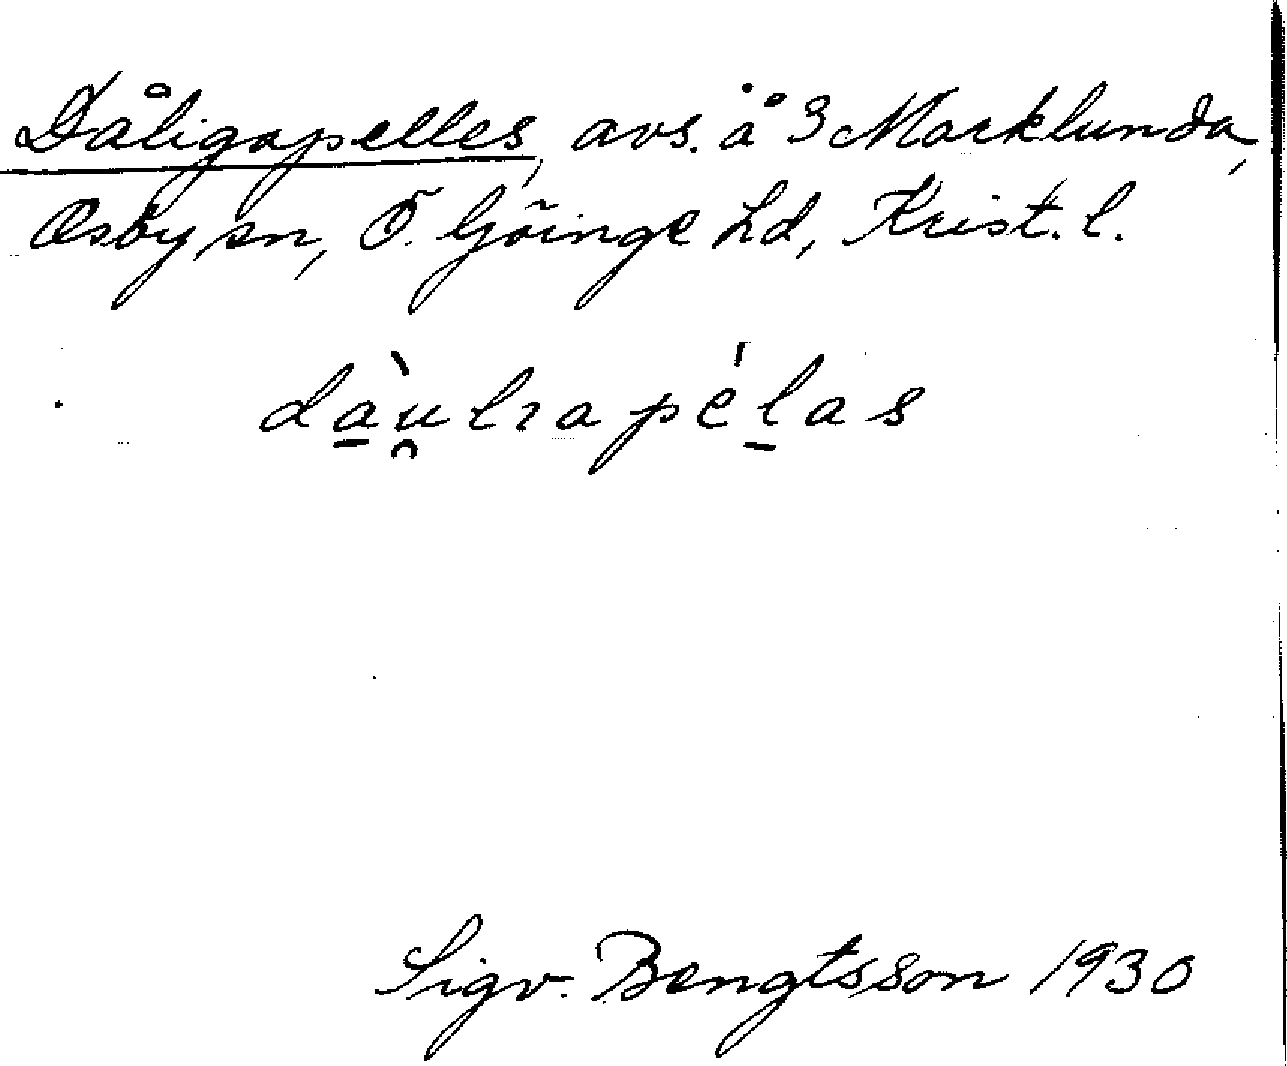 Dåligapelles, avs. å 3 Marklunda,
Osby sn, Ö. Göinge hd, Krist. l.
dàu̯lıapélas
Sigv. Bengtsson 1930